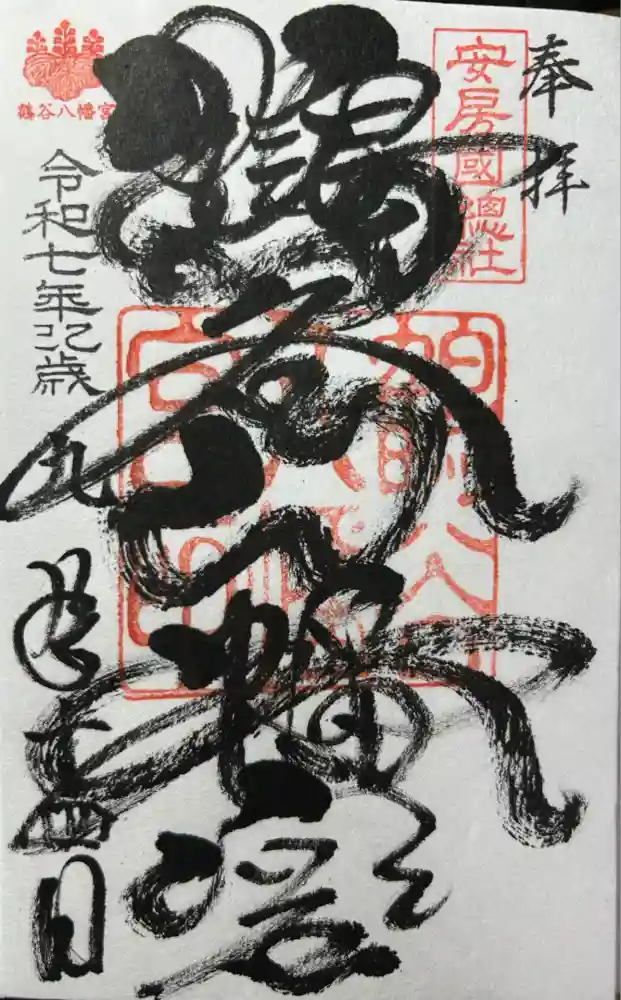 奉拝
安房國總社
鶴谷八幡宮
鶴谷八幡宮
令和七年乙巳歳
九月十四日